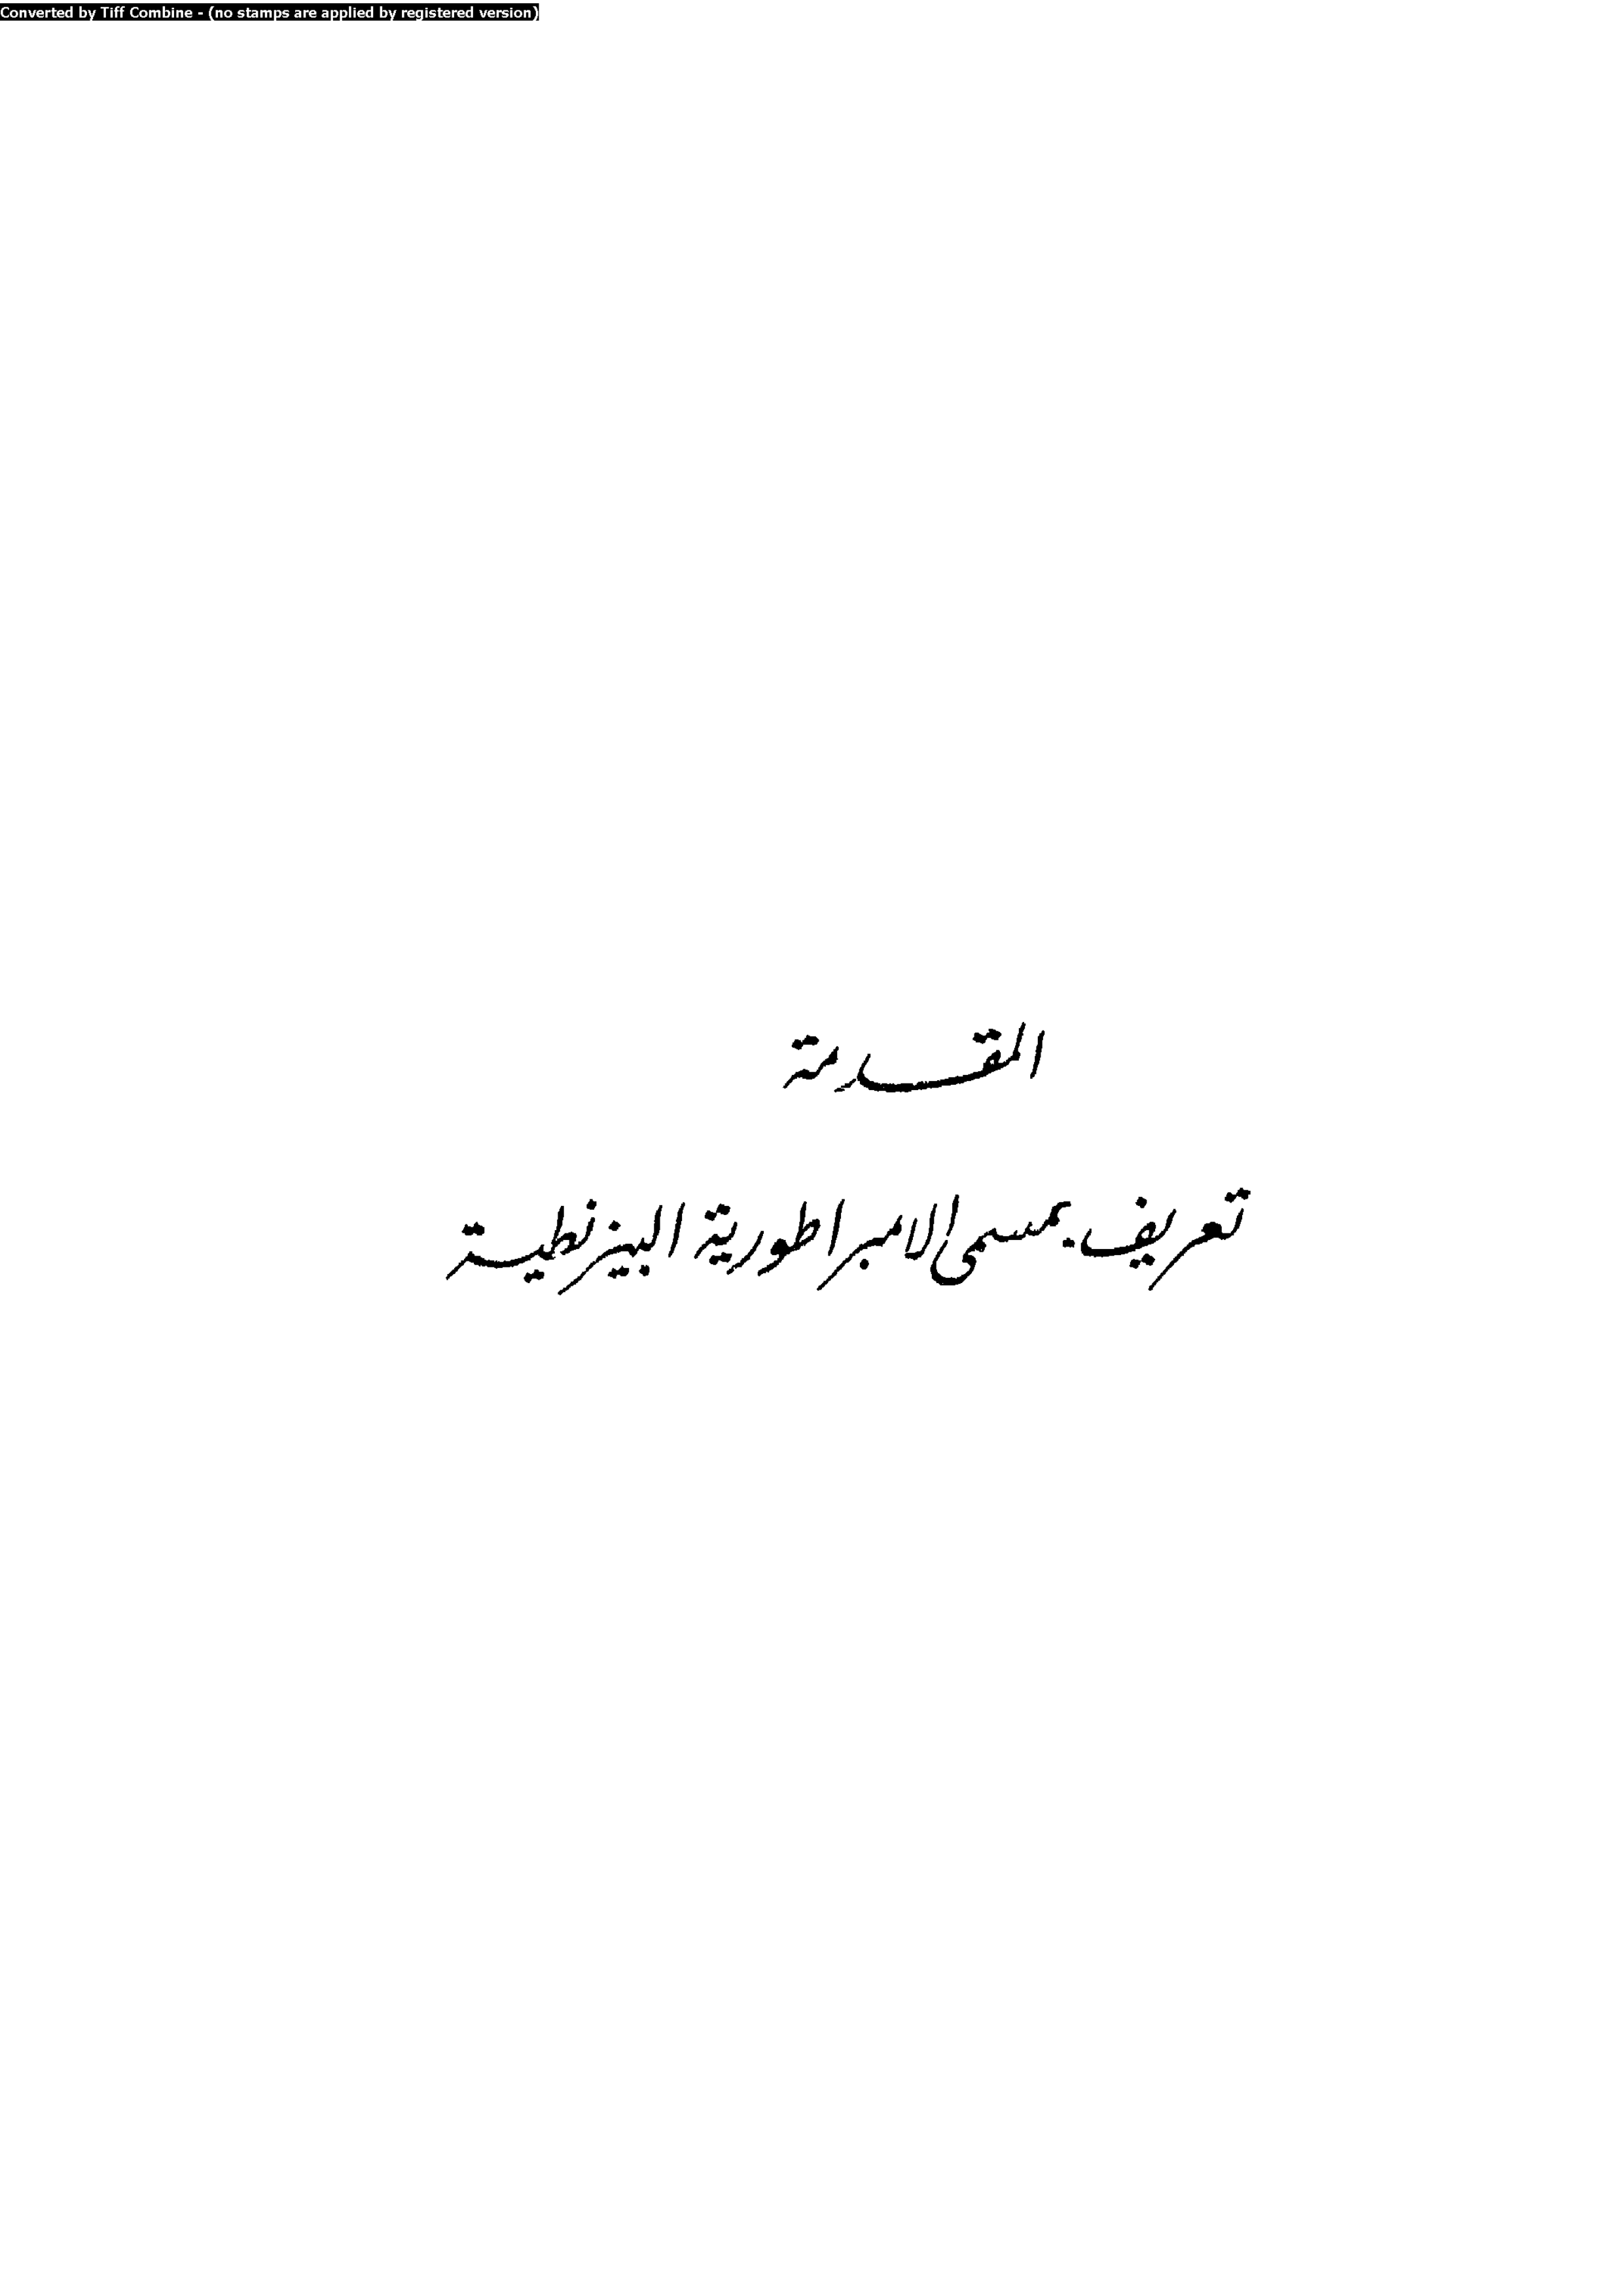 Converted by Tiff Combine - (no stamps are applied by registered version)
المقدمة
تعريف بمسمى الامبراطورية البيزنطية